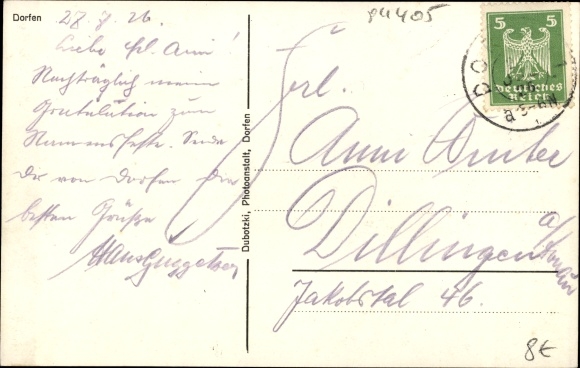 Dorfen
27. 7. 26.
Liebe Frl. Anni!
Nachträglich meine
Gratulation zum
Namensfeste. Sende
Dir von Dorfen die
besten Grüße
Hans
Dubotzki, Photoanstalt, Dorfen
94405
5 5
Deutsches
Reich
DO
Frl.
Anni
Dillingen
a/Donau
Jakobstal 46.
8€